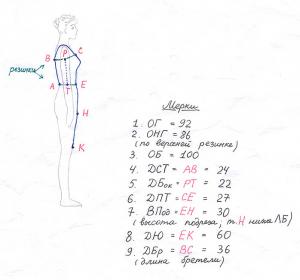 P
B
C
резинки
A
T
E
H
K
Мерки
1. ОГ = 92
2. ОНГ = 86
(по верхней резинке)
3. ОБ = 100
4. ДСТ = AB = 24
5. ДБок = PT = 22
6. ДПТ = CE = 27
7. ВПод = EH = 30
(высота подреза, т.H ниже ЛБ)
8. ДЮ = EK = 60
9. ДБр = BC = 36
(длина бретели)